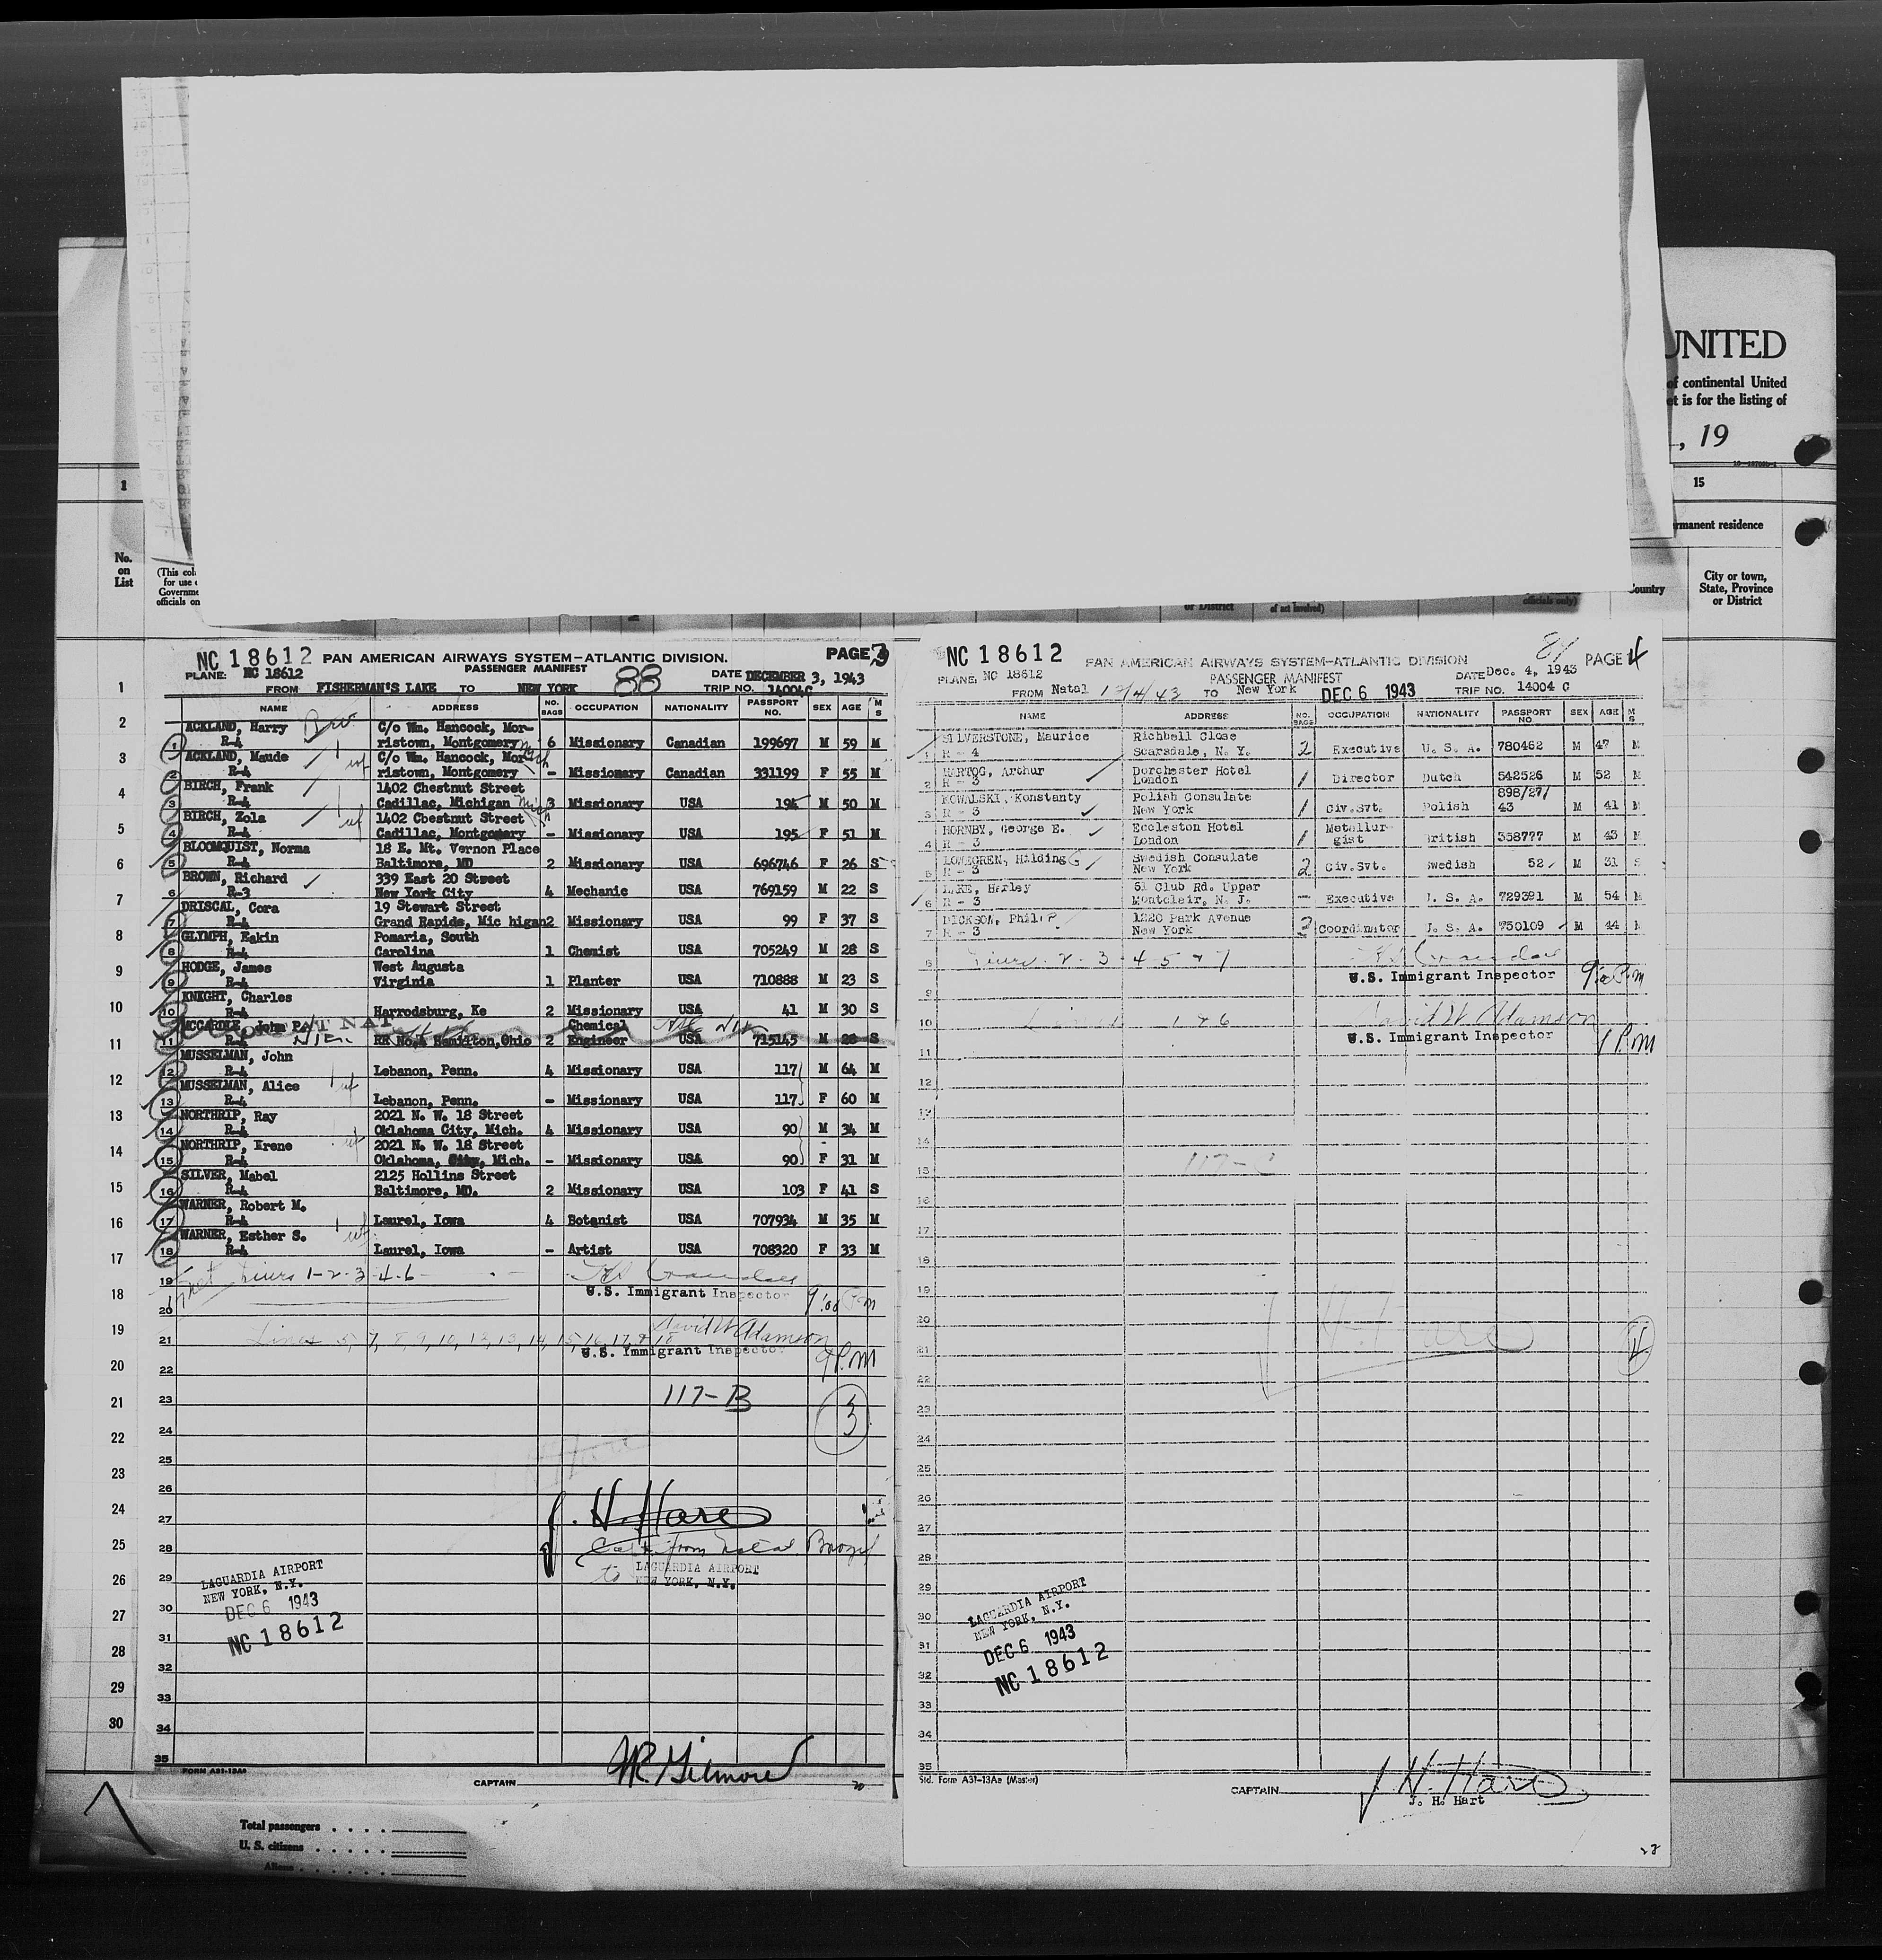 UNITED
of continental United
et is for the listing of
, 19
1
15
rmanent residence
No.
on
List
(This col
for use
Governme
officials on
or District
of act involved)
officials only)
Country
City or town,
State, Province
or District
NC 18612 PAN AMERICAN AIRWAYS SYSTEM—ATLANTIC DIVISION. PAGE 3
PLANE: NC 18612 PASSENGER MANIFEST 88 DATE DECEMBER 3, 1943
FROM FISHERMAN'S LAKE TO NEW YORK TRIP NO. 14004C
NAME ADDRESS NO. BAGS OCCUPATION NATIONALITY PASSPORT NO. SEX AGE M S
ACKLAND, Harry C/o Wm. Hancock, Mor-
1 R-4 ristown, Montgomery 6 Missionary Canadian 199697 M 59 M
ACKLAND, Maude C/o Wm. Hancock, Mor-
2 R-4 ristown, Montgomery - Missionary Canadian 331199 F 55 M
BIRCH, Frank 1402 Chestnut Street
3 R-4 Cadillac, Michigan 3 Missionary USA 194 M 50 M
BIRCH, Zola 1402 Chestnut Street
4 R-4 Cadillac, Montgomery - Missionary USA 195 F 51 M
BLOOMQUIST, Norma 18 E. Mt. Vernon Place
5 R-4 Baltimore, MD 2 Missionary USA 696746 F 26 S
BROWN, Richard 339 East 20 Street
6 R-3 New York City 4 Mechanic USA 769159 M 22 S
DRISCAL, Cora 19 Stewart Street
7 R-4 Grand Rapids, Mic higan 2 Missionary USA 99 F 37 S
GLYMPH, Eakin Pomaria, South
8 R-4 Carolina 1 Chemist USA 705249 M 28 S
HODGE, James West Augusta
9 R-4 Virginia 1 Planter USA 710888 M 23 S
KNIGHT, Charles
10 R-4 Harrodsburg, Ke 2 Missionary USA 41 M 30 S
MCCARDLE, John P. Chemical
11 R-4 RR No.4 Hamilton, Ohio 2 Engineer USA 715145 M 28 S
MUSSELMAN, John
12 R-4 Lebanon, Penn. 4 Missionary USA 117 M 64 M
MUSSELMAN, Alice
13 R-4 Lebanon, Penn. - Missionary USA 117 F 60 M
NORTHRIP, Ray 2021 N. W. 18 Street
14 R-4 Oklahoma City, Mich. 4 Missionary USA 90 M 34 M
NORTHRIP, Irene 2021 N. W. 18 Street
15 R-4 Oklahoma, City, Mich. - Missionary USA 90 F 31 M
SILVER, Mabel 2125 Hollins Street
16 R-4 Baltimore, MD. 2 Missionary USA 103 F 41 S
WARNER, Robert M.
17 R-4 Laurel, Iowa 4 Botanist USA 707934 M 35 M
WARNER, Esther S.
18 R-4 Laurel, Iowa - Artist USA 708320 F 33 M
19 Lines 1-2-3-4-6
U.S. Immigrant Inspector 9:00 P.m
20
21 Lines 5, 7, 8, 9, 10, 12, 13, 14, 15, 16, 17, & 18 David W. Adamson
U.S. Immigrant Inspector 9 P.m
22
23 117-B
3
24
25
26
27 J. H. Hare
28 Capt from Natal Brazil
29 to LAGUARDIA AIRPORT
NEW YORK, N.Y.
LAGUARDIA AIRPORT
NEW YORK, N.Y.
DEC 6 1943
NC 18612
30
31
32
33
34
35
FORM A31-13A
CAPTAIN
NC 18612 PAN AMERICAN AIRWAYS SYSTEM—ATLANTIC DIVISION 81 PAGE 4
PLANE: NC 18612 PASSENGER MANIFEST DATE Dec. 4, 1943
FROM Natal 12/4/43 TO New York DEC 6 1943 TRIP NO. 14004 C
NAME ADDRESS NO. BAGS OCCUPATION NATIONALITY PASSPORT NO. SEX AGE M S
SILVERSTONE, Maurice Richbell Close
1 R - 4 Scarsdale, N. Y. 2 Executive U. S. A. 780462 M 47 M
HARTOG, Arthur Dorchester Hotel
2 R - 3 London 1 Director Dutch 542526 M 52 M
KOWALSKI, Konstanty Polish Consulate 898/27/
3 R - 3 New York 1 Civ.Svt. Polish 43 M 41 M
HORNBY, George E. Eccleston Hotel Metallur-
4 R - 3 London 1 gist British 358777 M 43 M
LOVEGREN, Hilding G Swedish Consulate
5 R - 3 New York 2 Civ.Svt. Swedish 52 M 31 S
LAKE, Harley 51 Club Rd. Upper
6 R - 3 Montclair, N. J. - Executive U. S. A. 729391 M 54 M
DICKSON, Philip 1220 Park Avenue
7 R - 3 New York 2 Coordinator U. S. A. 750109 M 44 M
8 Lines 2-3-4-5 & 7
U.S. Immigrant Inspector 9:00 P.m
9
10 Lines 1 & 6 David W. Adamson
U.S. Immigrant Inspector 9 P.m
11
12
13
14
15 117-C
16
17
18
19
20
J H. Hare
21 4
22
23
24
25
26
27
28
29
LAGUARDIA AIRPORT
NEW YORK, N.Y.
DEC 6 1943
NC 18612
30
31
32
33
34
35
Std. Form A31-13Aa (Master)
CAPTAIN J. H. Hare
J. H. Hart
1
2
3
4
5
6
7
8
9
10
11
12
13
14
15
16
17
18
19
20
21
22
23
24
25
26
27
28
29
30
Total passengers
U. S. citizens
Aliens